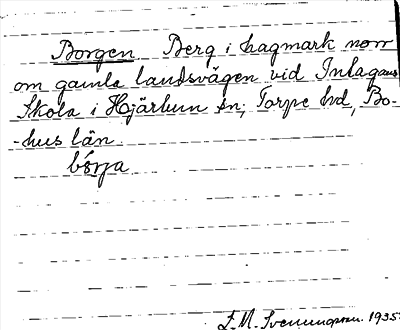 Borgen Berg i hagmark norr
om gamla landsvägen vid Inlagans
Skola i Hjärtum sn; Torpe hd, Bo-
-hus län.
börja
S.M. Svenungsson. 1935.